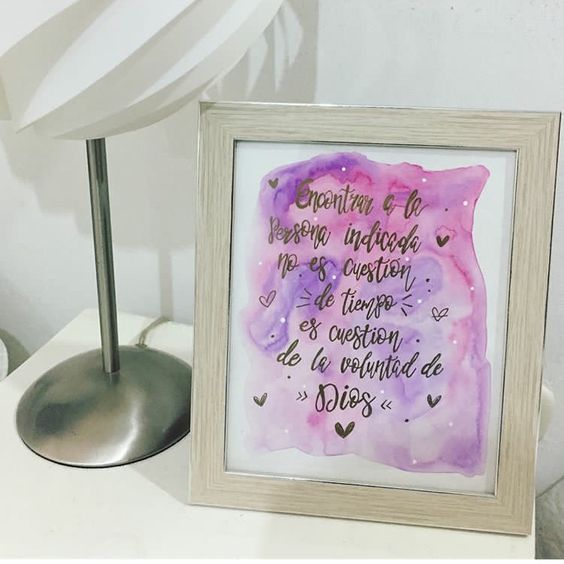 Encontrar a la
Persona indicada
no es cuestión
de tiempo
es cuestion
de la voluntad de
Dios